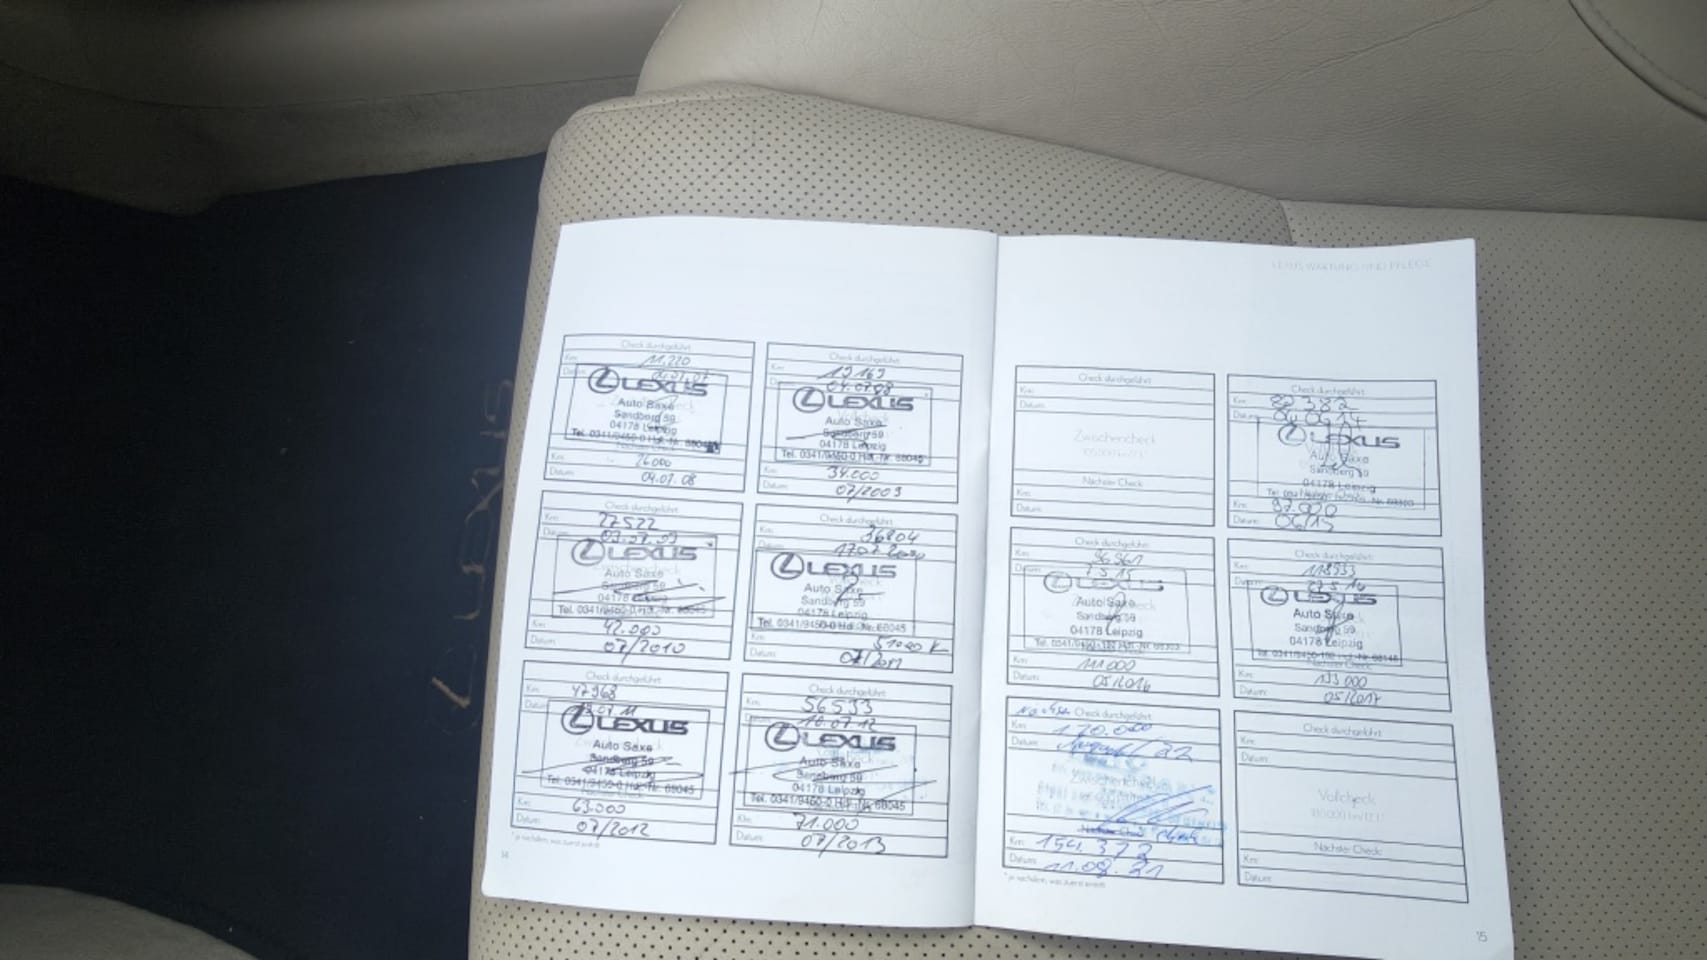 LEXUS WARTUNG UND PFLEGE
Check durchgeführt:
Km: 11.220
Datum:
LEXUS
Auto Saxe
Sandberg 59
04178 Leipzig
Tel. 0341/9450-0 Hdl.-Nr.
26.000
Datum: 04.07.08
Check durchgeführt:
Km: 19169
04.07.08
LEXUS
Auto Saxe
Sandberg 59
04178 Leipzig
Tel. 0341/9450-0 Hdl.-Nr. 68045
Km: 34.000
Datum: 07/2009
Check durchgeführt:
Km: 27522
LEXUS
Auto Saxe
Sandberg 59
04178 Leipzig
Tel. 0341/9450-0 Hdl.-Nr. 68045
Km: 42.000
Datum: 07/2010
Check durchgeführt:
Km: 36804
LEXUS
Auto Saxe
Sandberg 59
04178 Leipzig
Tel. 0341/9450-0 Hdl.-Nr. 68045
Km: 51000 K
Datum: 07/2011
Check durchgeführt:
Km: 47968
Datum: 07 11
LEXUS
Auto Saxe
Sandberg 59
04178 Leipzig
Tel. 0341/9450-0 Hdl.-Nr. 68045
Km: 63.000
Datum: 07/2012
Check durchgeführt:
Km: 56533
Datum: 10.07.12
LEXUS
Auto Saxe
Sandberg 59
04178 Leipzig
Tel. 0341/9450-0 Hdl.-Nr. 68045
Km: 71.000
Datum: 07/2013
* je nachdem, was zuerst eintritt
14
Check durchgeführt:
Km:
Datum:
Zwischencheck
Nächster Check:
Km:
Datum:
Check durchgeführt:
Km: 82.382
Datum:
LEXUS
Auto Saxe
Sandberg 59
04178 Leipzig
Km:
Datum: 06/15
Check durchgeführt:
Km: 96961
Datum: 7.5.15
LEXUS
Auto Saxe
Sandberg 59
04178 Leipzig
Km: 111.000
Datum: 05/2016
Check durchgeführt:
Km: 118533
Datum:
LEXUS
Auto Saxe
Sandberg 59
04178 Leipzig
Nächster Check:
Km: 133.000
Datum: 05/2017
Check durchgeführt:
Km: 170.000
Datum: August/22
Zwischencheck
Nächster Check:
Km: 154.372
Datum: 11.08.21
Check durchgeführt:
Km:
Datum:
Vollcheck
Nächster Check:
Km:
Datum:
* je nachdem, was zuerst eintritt
15
LEXUS